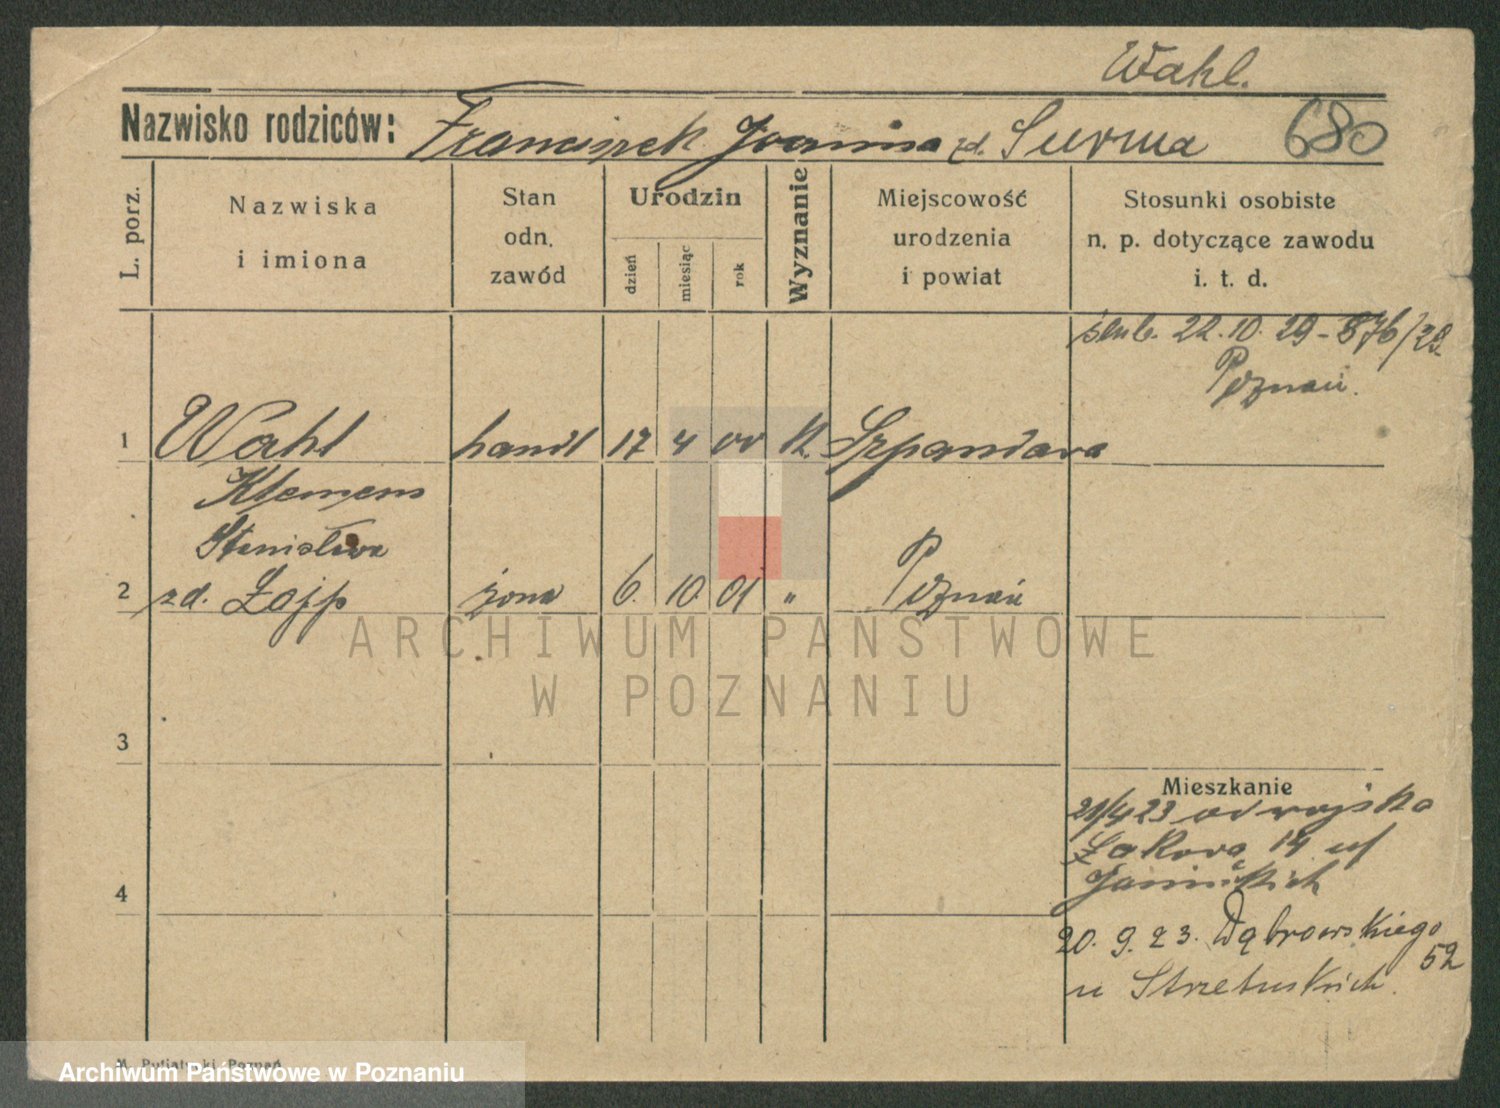 Wahl.
Nazwisko rodziców: Franciszek Joanna zd. Surma 680
L. porz.
Nazwiska
i imiona
Stan
odn.
zawód
Urodzin
dzień
miesiąc
rok
Wyznanie
Miejscowość
urodzenia
i powiat
Stosunki osobiste
n. p. dotyczące zawodu
i. t. d.
ślub. 22.10.29 - 876/29
Poznań.
1 Wahl handl 17 4 00 k. Szpandawa
Klemens
Stanisława
2 zd. Łajp żona 6. 10 01 " Poznań
3
Mieszkanie
21/4 23 od wojska
Łąkowa 14 uf
4
20. 9. 23. Dąbrowskiego
52
u
M. Putiatycki Poznań
ARCHIWUM PAŃSTWOWE
W POZNANIU
Archiwum Państwowe w Poznaniu